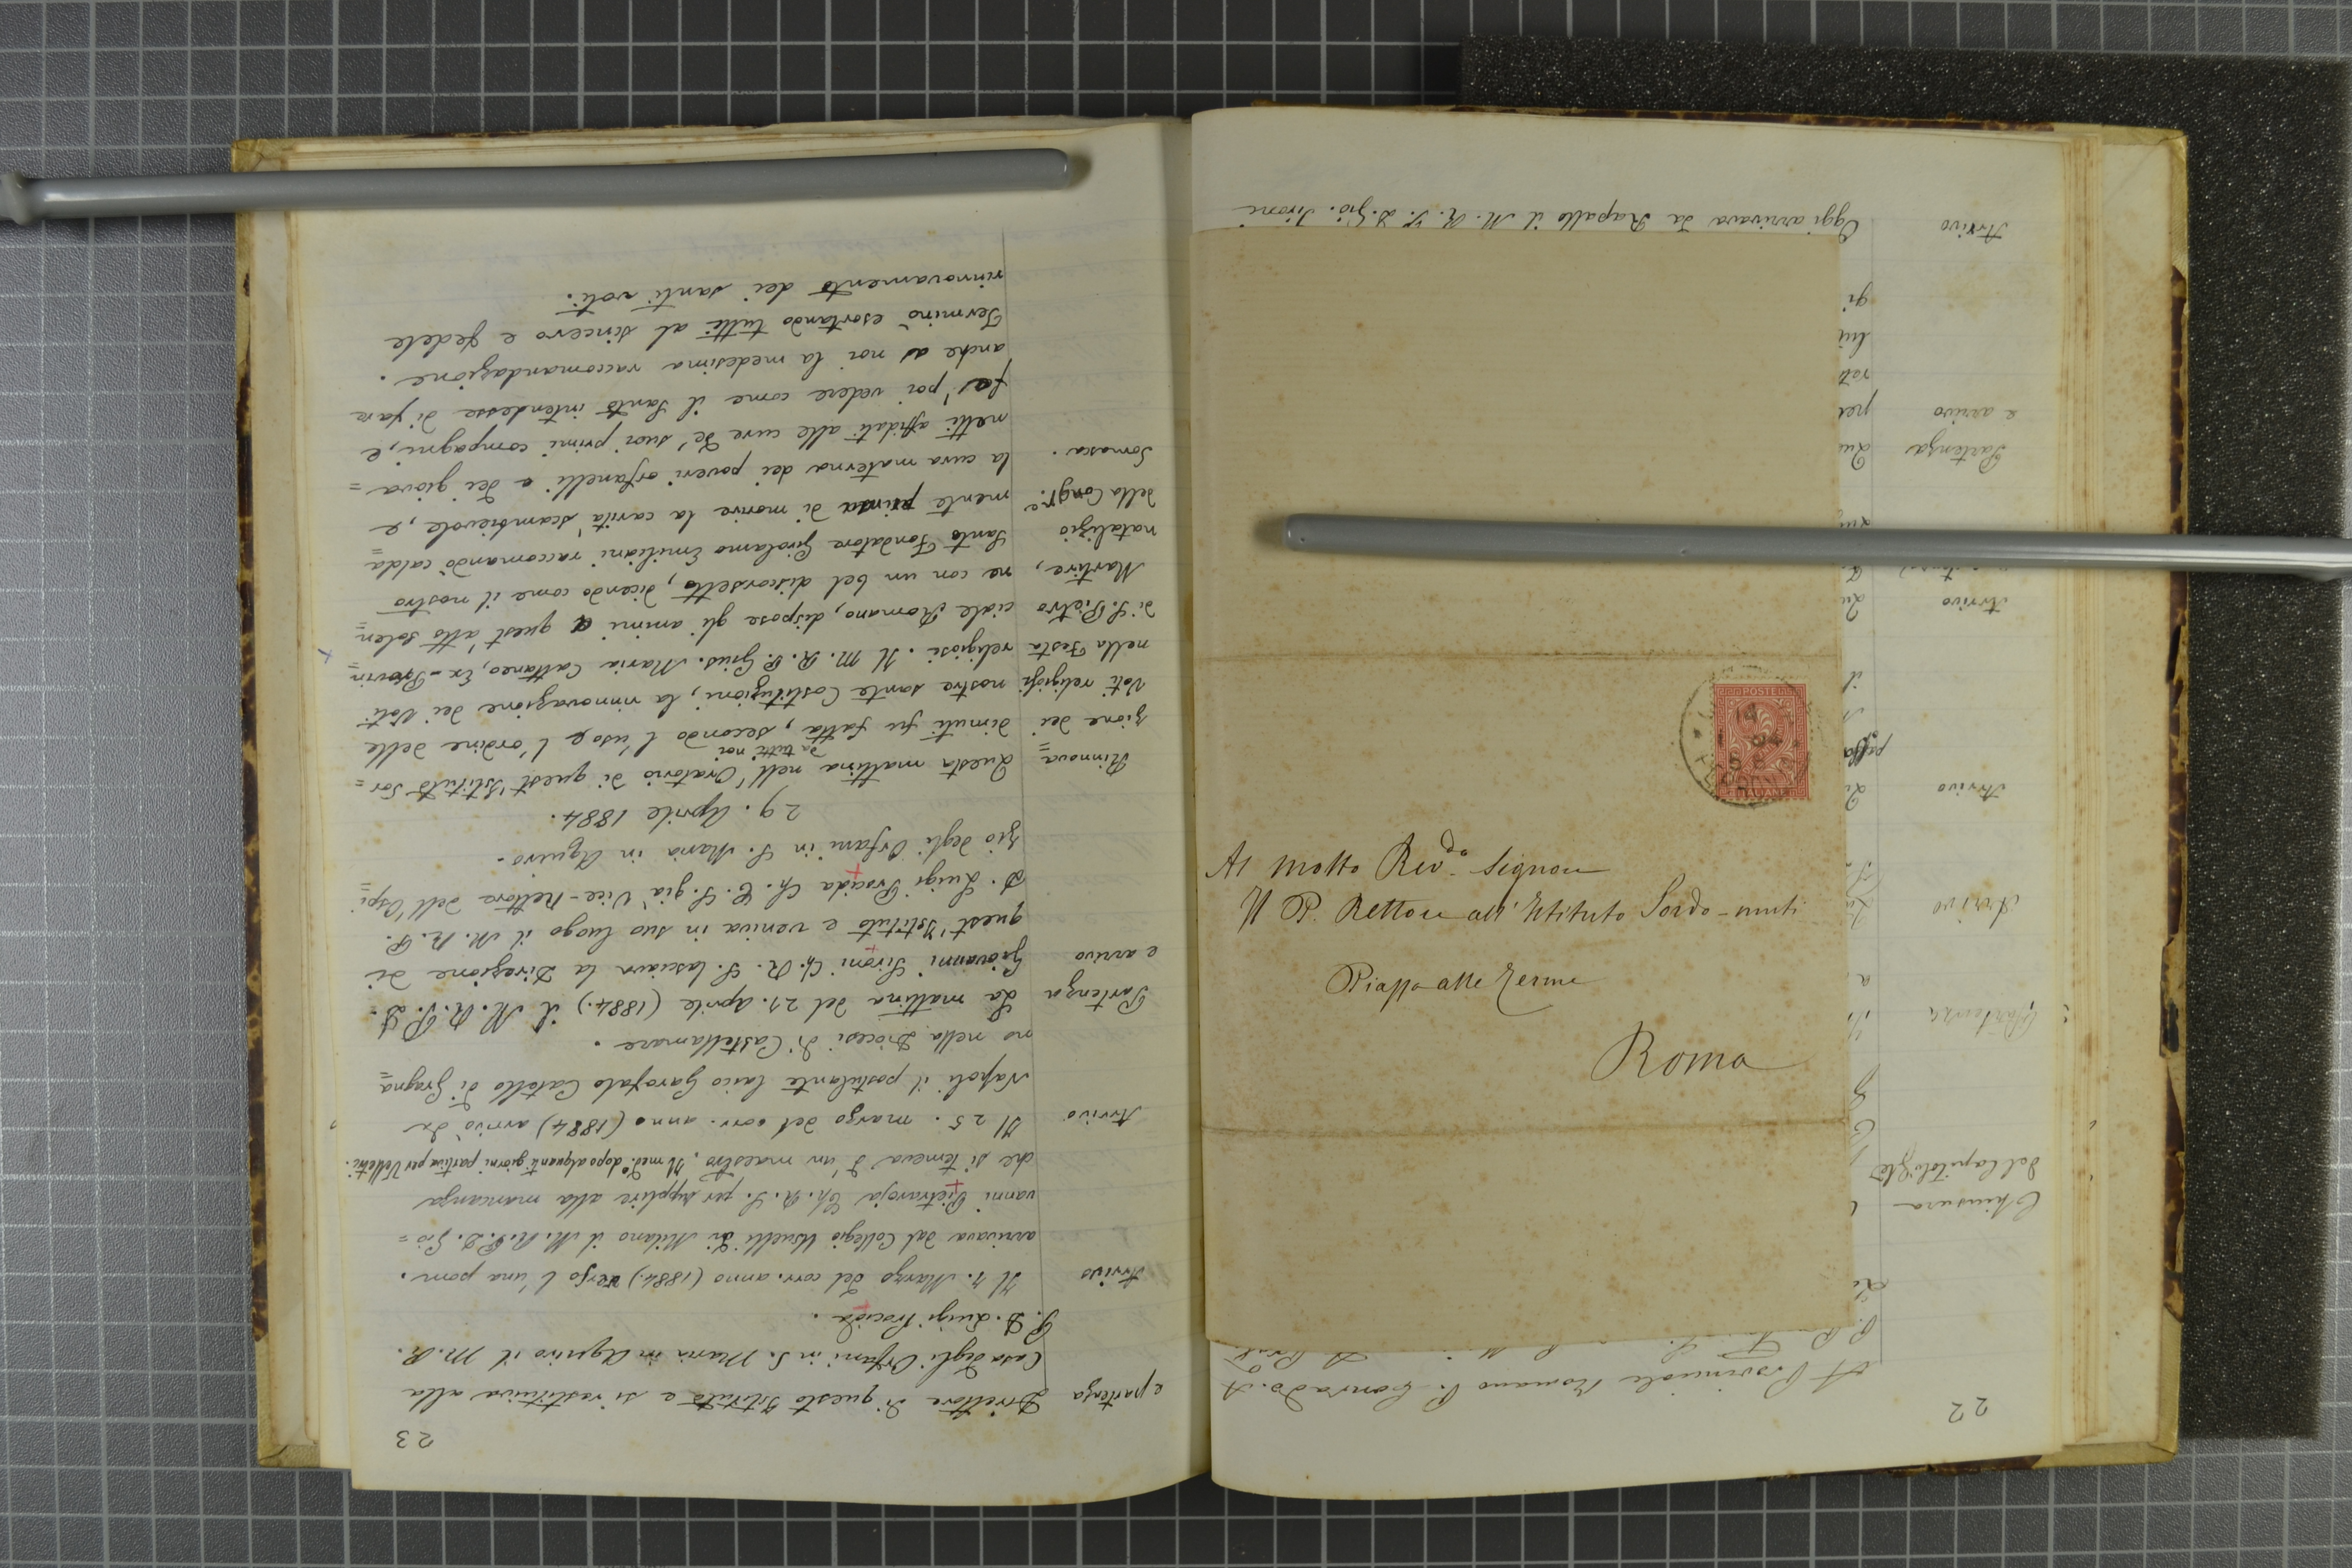 22
A Provinciale Romano P. Corrado. A
Chiusura
del Capitolo Gle
Partenza
Arrivo
Arrivo
Arrivo
Partenza
e arrivo
Arrivo
Oggi arrivava da Rapallo il M. R. P. D. Gio. Sironi
Al Molto Rev.do Signore
Il P. Rettore all' Istituto Sordo-muti
Piazza alle Terme
Roma
POSTE
ITALIANE
23
e partenza
Direttore di questo Istituto e si restituiva alla
Casa degli Orfani in S. Maria in Aquiro il M. R.
P. D. Luigi Procida.
Arrivo
Il 7. Marzo del corr. anno (1884.) verso l'una pom.
arrivava dal Collegio Usuelli di Milano il M. R. P. D. Gio=
vanni Pietraroja Ch. R. S. per supplire alla mancanza
che si temeva d'un maestro. Il med.o dopo alquanti giorni partiva per Velletri.
Arrivo
Il 25. marzo del corr. anno (1884) arrivò da
Napoli il postulante laico Garofalo Catello di Gragna=
no nella Diocesi di Castellamare.
Partenza
e arrivo
La mattina del 27. Aprile (1884.) il M. R. P. D.
Giovanni Sironi Ch. R. S. lasciava la Direzione di
quest'Istituto e veniva in suo luogo il M. R. P.
D. Luigi Procida Ch. R. S. già Vice-Rettore dell'Ospi=
zio degli Orfani in S. Maria in Aquiro.
29. Aprile 1884.
Rinnova=
zione dei
Voti religiosi
nella Festa
di S. Pietro
Martire,
natalizio
della Congr.e
Somasca.
Questa mattina nell'Oratorio di quest'Istituto Sor=
da tutti noi
dimuti fu fatta, secondo l'uso e l'ordine delle
nostre sante Costituzioni, la rinnovazione dei Voti
religiosi. Il M. R. P. Gius. Maria Cattaneo, Ex-Provin=
ciale Romano, dispose gli animi a quest'atto solen=
ne con un bel discorsetto, dicendo come il nostro
Santo Fondatore Girolamo Emiliani raccomandò calda=
mente prima di morire la carità scambievole, e
la cura materna dei poveri orfanelli e dei giova=
netti affidati alle cure de' suoi primi compagni, e
fe' poi vedere come il Santo intendesse di fare
anche a noi la medesima raccomandazione.
Terminò esortando tutti al sincero e fedele
rinnovamento dei santi voti.